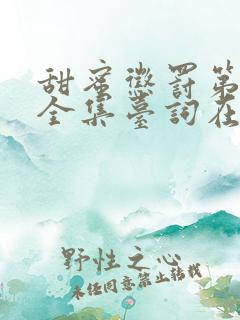 甜蜜懲罰第
全集臺詞在
野性之心
未经同意禁止转载